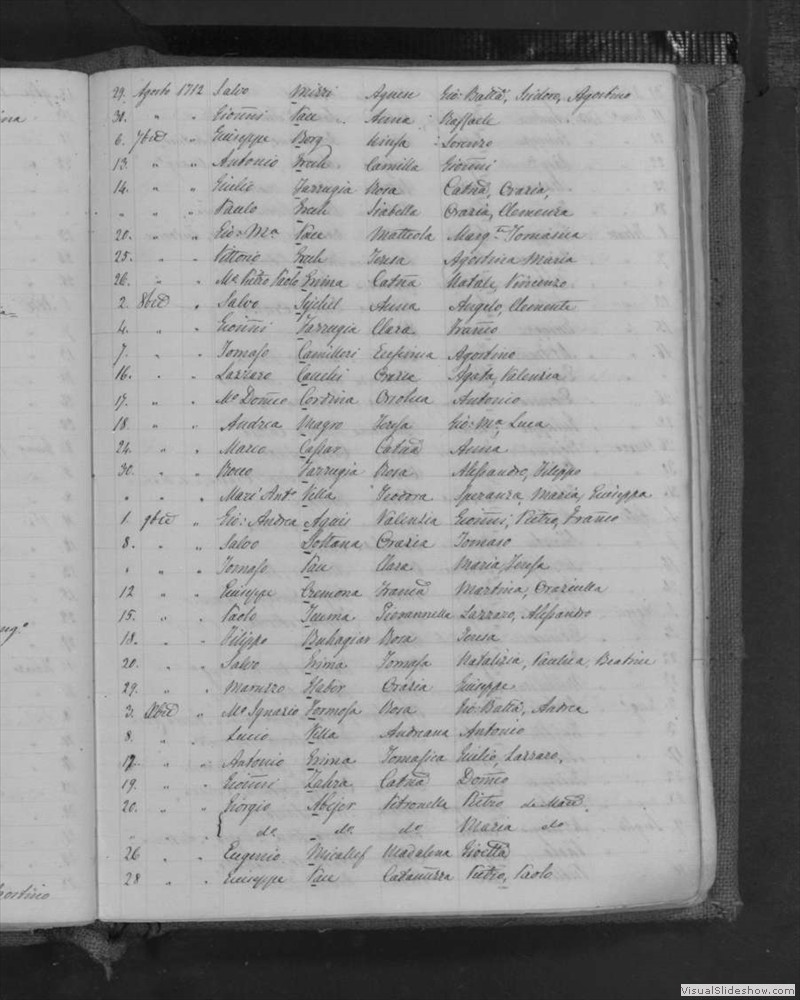 29. Agosto 1712 Salvo Mizzi Agnese Gio: Batta, Isidoro, Agostino
31. " " Gioñni Pace Anna Raffaele
6. 7bre " Giuseppe Borg Ninfa Lorenzo
13. " " Antonio Grech Camilla Gioñni
14. " " Giulio Farrugia Rosa Catña, Grazia,
" " " Paulo Grech Isabella Grazia, Clemenza
20. " " Gio: Ma Pace Matteola Marga Tomasia
25. " " Vittorio Grech Teresa Agostina Maria
26. " " Mo Pietro Paolo Grima Catña Natale, Vincenzo
2. 8bre " Salvo Spitel Anna Angelo, Clemente
4. " " Gioñni Farrugia Clara Franco
7. " " Tomaso Camilleri Eufemia Agostino
16. " " Lazzaro Cauchi Grazia Agata, Valenzia
17. " " Mo Domco Cordina Onolua Antonio
18. " " Andrea Magro Teresa Gio: Ma Luca
24. " " Marco Caspar Catña Anna
30. " " Rocco Farrugia Rosa Alessandro, Filippo
" " " Mari' Anto Villa Teodora Speranza, Maria, Giuseppa
1. 9bre " Gio: Andrea Agius Valenzia Gioñni, Pietro, Franco
8. " " Salvo Soltana Grazia Tomaso
" " " Tomaso Pace Clara Maria, Teresa
12 " " Giuseppe Cremona Franca Martina, Graziulla
15. " " Paolo Tewma Giovannella Lazzaro, Alessandro
18. " " Filippo Buhagiar Rosa Teresa
20. " " Salvo Grima Tomasa Natalizia, Paulica, Beatrice
29. " " Maruzzo Haber Grazia Giuseppe
3. Xbre " Mo Ignazio Formosa Rosa Gio: Batta, Andrea
8. " " Lucio Villa Andreana Antonio
12. " " Antonio Grima Tomasica Giulio, Lazzaro,
19. " " Gioñni Zahra Catña Domco
20. " " Giorgio Abejer Petronella Pietro de Mand.
" " " { do do do Maria do
26 " " Eugenio Micallef Madalena Gioetta
28 " " Giuseppe Pace Catanuzza Pietro, Paolo
ng.o
gostino
VisualSlideshow.com